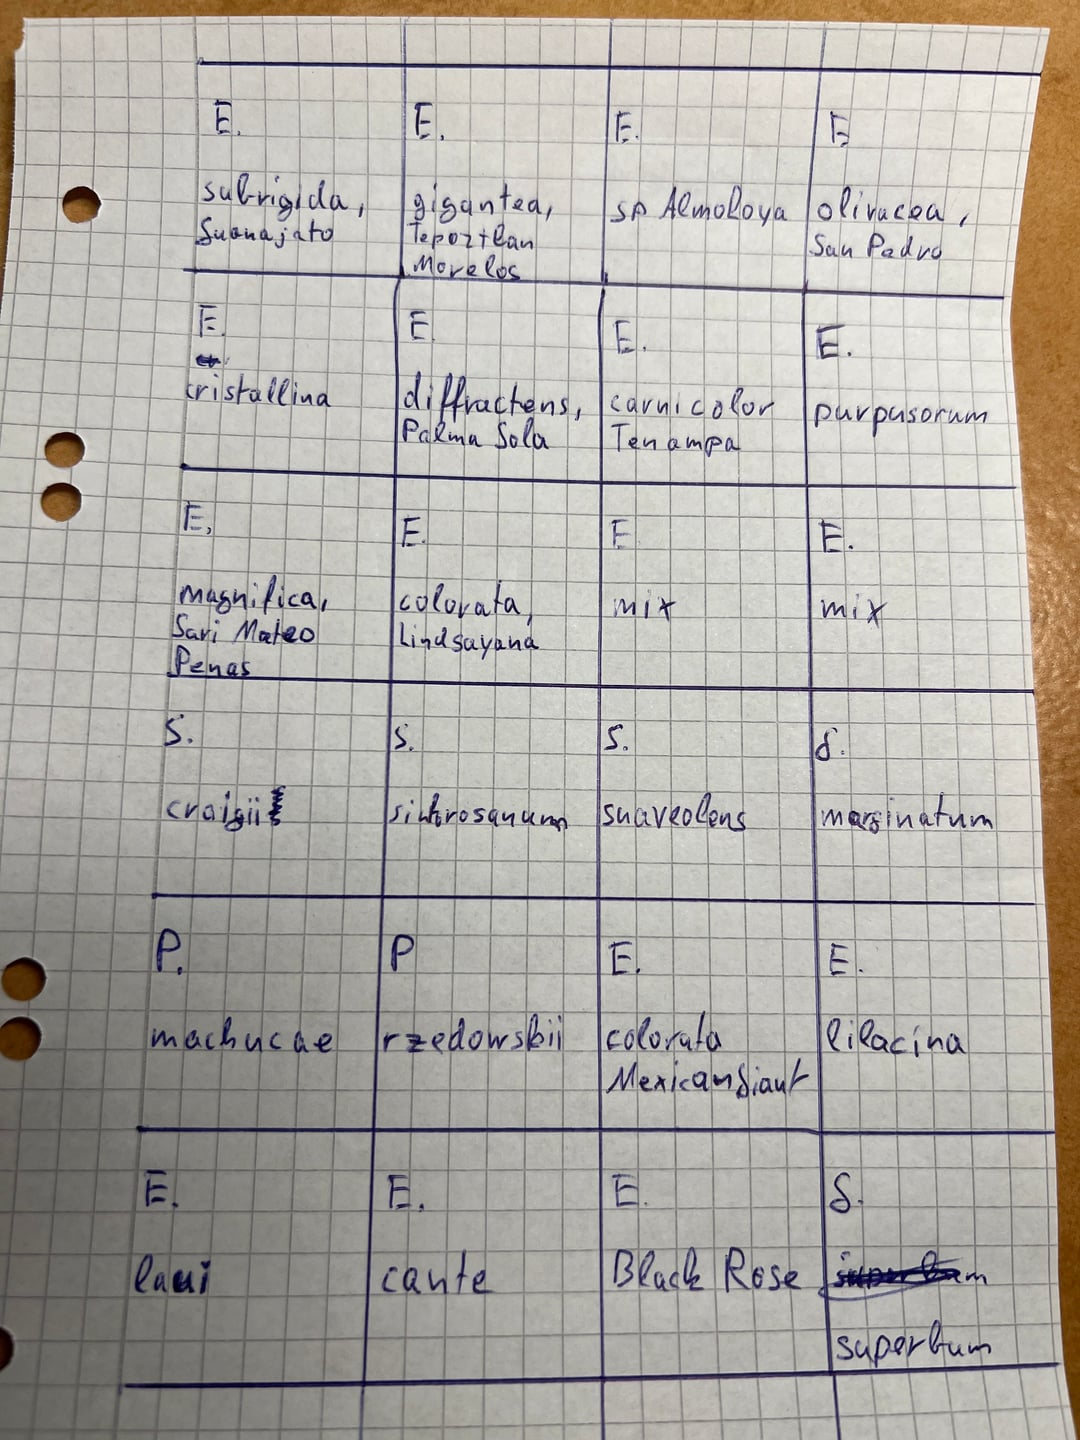 E. E. E. E
subrigida, gigantea, sp Almoloya olivacea,
Guanajato Tepoztlan San Pedro
Morelos
E. E. E. E.
cristallina diffractens, carnicolor purpusorum
Palma Sola Tenampa
E. E. E. E.
magnifica, colorata, mix mix
Mateo Lindsayana
Penas
S. S. S. S.
craigii suaveolens marginatum
P. P E. E.
machucae rzedowskii colorata lilacina
Mexican Giant
E. E. E. S.
laui cante Black Rose
superbum